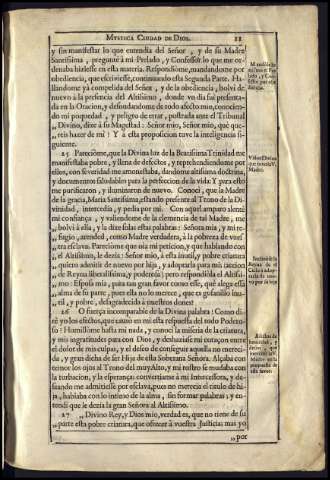 MYSTICA CIUDAD DE DIOS. 11
y sin manifestar lo que entendia del Señor, y de su Madre
Santissima, pregunté à mi Prelado, y Confessor lo que me or-
denaba hiziesse en esta materia. Respondiòme, mandandome por
obediencia, que escriviesse, continuando esta Segunda Parte. Ha-
llandome yà compelida del Señor, y de la obediencia, bolvi de
nuevo à la presencia del Altissimo, donde vn dia fui presenta-
da en la Oracion, y desnudandome de todo afecto mio, conocien-
do mi poquedad, y peligro de errar, postrada ante el Tribunal
Divino, dixe à su Magestad: Señor mio, Señor mio, què que-
reis hazer de mi? Y à esta proposicion tuve la inteligencia si-
guiente.
25 Pareciòme, que la Divina luz de la Beatissima Trinidad me
manifestaba pobre, y llena de defectos, y reprehendiendome por
ellos, con severidad me amonestaba, dandome altissima doctrina,
y documentos saludables para la perfeccion de la vida. Y para esto
me purificaron, y iluminaron de nuevo. Conocì, que la Madre
de la gracia, Maria Santissima, estando presente al Trono de la Di-
vinidad, intercedia, y pedia por mi. Con aquel amparo alentè
mi confiança, y valiendome de la clemencia de tal Madre, me
bolvì à ella, y la dixe solas estas palabras: Señora mia, y mi re-
fugio, atended, como Madre verdadera, à la pobreza de vues-
tra esclava. Pareciome que oìa mi peticion, y que hablando con
el Altissimo, le dezia: Señor mio, à esta inutil, y pobre criatura
quiero admitir de nuevo por hija, y adoptarla para mi (accion
de Reyna liberalissima, y poderosa) pero respondiòla el Altissi-
mo: Esposa mia, para tan gran favor como esse, què alega essa
alma de su parte, pues esta no lo merece, que es gusanillo inu-
til, y pobre, desagradecido à nuestros dones?
26 O fuerça incomparable de la Divina palabra! Como di-
rè yo los efectos, que causò en mi esta respuesta del todo Podero-
so? Humillòme hasta mi nada, y conocì la miseria de la criatura,
y mis ingratitudes para con Dios, y deshaziase mi coraçon entre
el dolor de mis culpas, y el deseo de conseguir aquella no mereci-
da, y gran dicha de ser Hija de esta Soberana Señora. Alçaba con
temor los ojos al Trono del muy Alto, y mi rostro se mudaba con
la turbacion, y la esperança: convertiame à mi Intercessora, y de-
seando me admitiesse por esclava, pues no merecia el titulo de hi-
ja, hablaba con lo intimo de la alma, sin formar palabras; y en-
tendi que le dezia la gran Señora al Altissimo.
27 Divino Rey, y Dios mio, verdad es, que no tiene de su
parte esta pobre criatura, que ofrecer à vuestra Justicia; mas yo
por